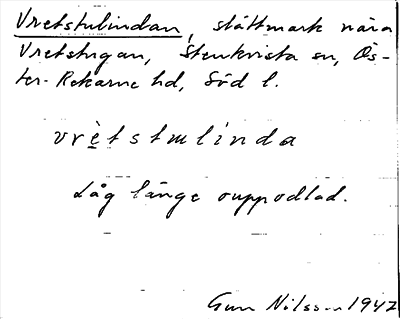 Vretstulindan, slåttmark nära
Vretstugan, Stenkvista sn, Ös-
ter-Rekarne hd, Söd l.
vrètstulinda
Låg länge ouppodlad.
Gun Nilsson 1942